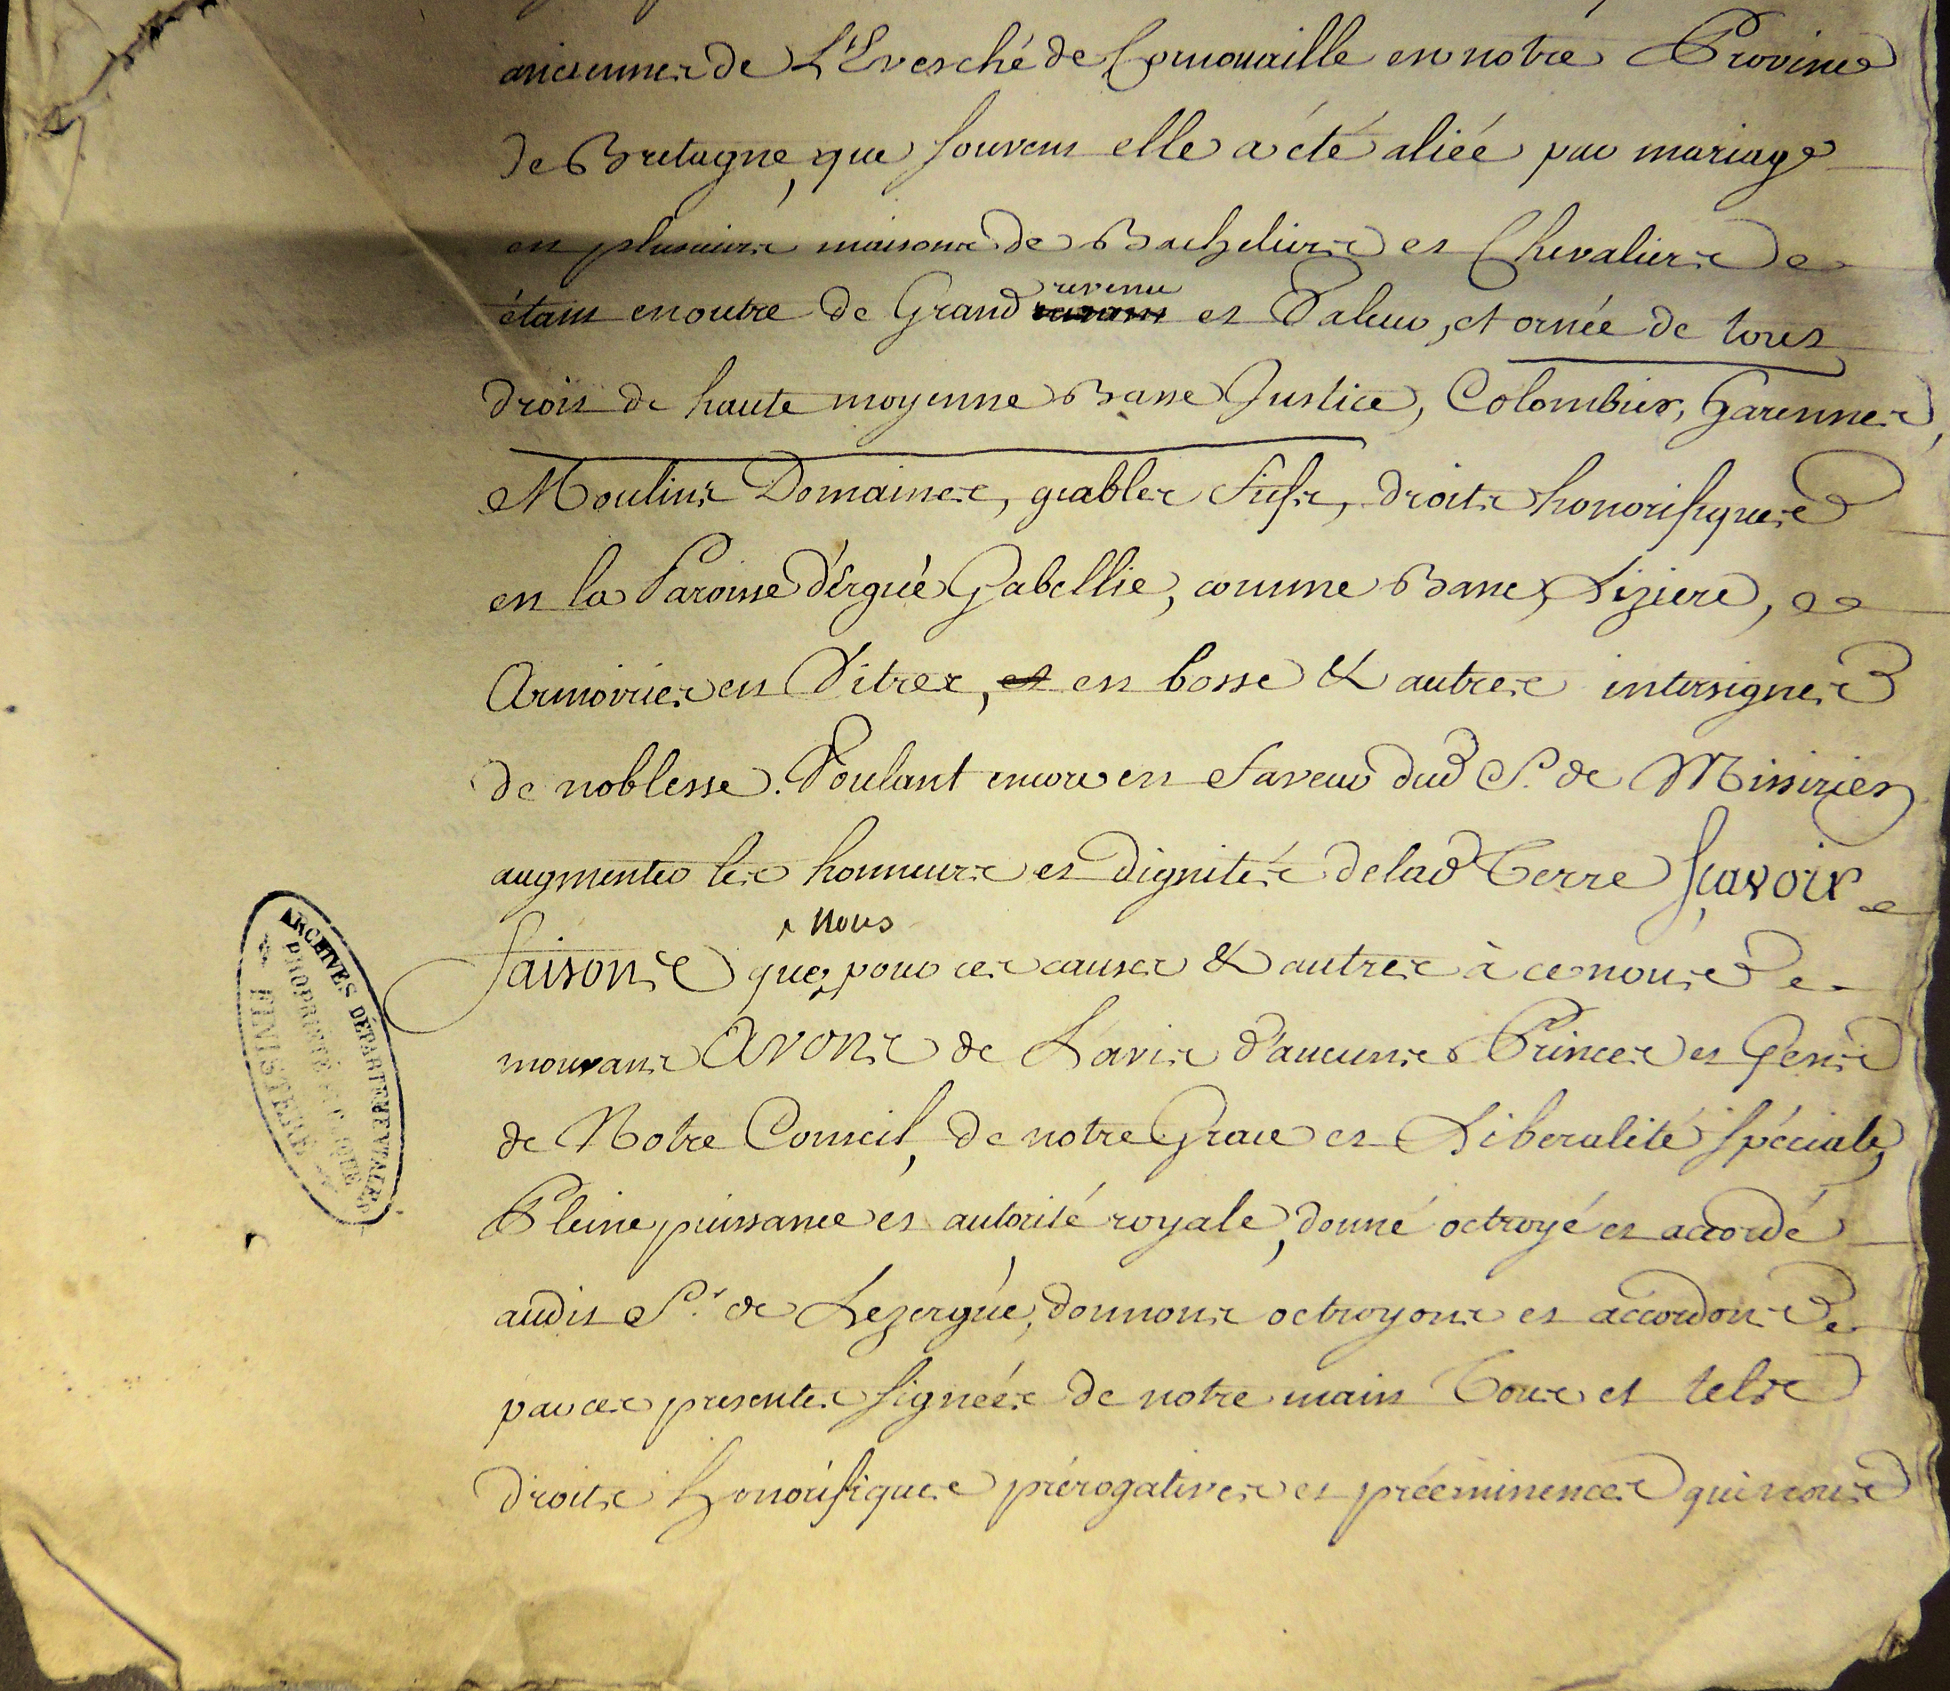 anciennes de L'Evesché de Cornouaille en notre Province
de Bretagne, que souvent elle a été aliéé par mariage
en plusieurs maisons de Bacheliers et Chevaliers
étant en outre de Grand revenu et Valeur, et ornée de tous
droit de haute moyenne Basse Justice, Colombier, Garennes,
Moulins Domaines, feables fiefs, droits honorifiques
en la Paroisse d'Ergué Gabellie, comme Banc, Liziere,
Armoiries en Vitres, et en bosse & autres intersignes
de noblesse. Voulant encore en faveur dud S. de Missirien
augmenter les honneurs et dignités de lad Terre sçavoir
nous
faisons que, pour ces causes & autres à ce nous
mouvans avons de L'avis d'aucuns Princes et Gens
de Notre Conseil, de notre Grace et Liberalité spéciale,
Pleine puissance et autorité royale, donné octroyé et accordé
audit Sr. de Lezergüe, donnons octroyons et accordons
par ces presentes signéés de notre main Tous et tels
droits honorifiques prérogatives et prééminences qui nous
ARCHIVES DÉPARTEMENTALES
PROPRIÉTÉ PUBLIQUE
FINISTÈRE